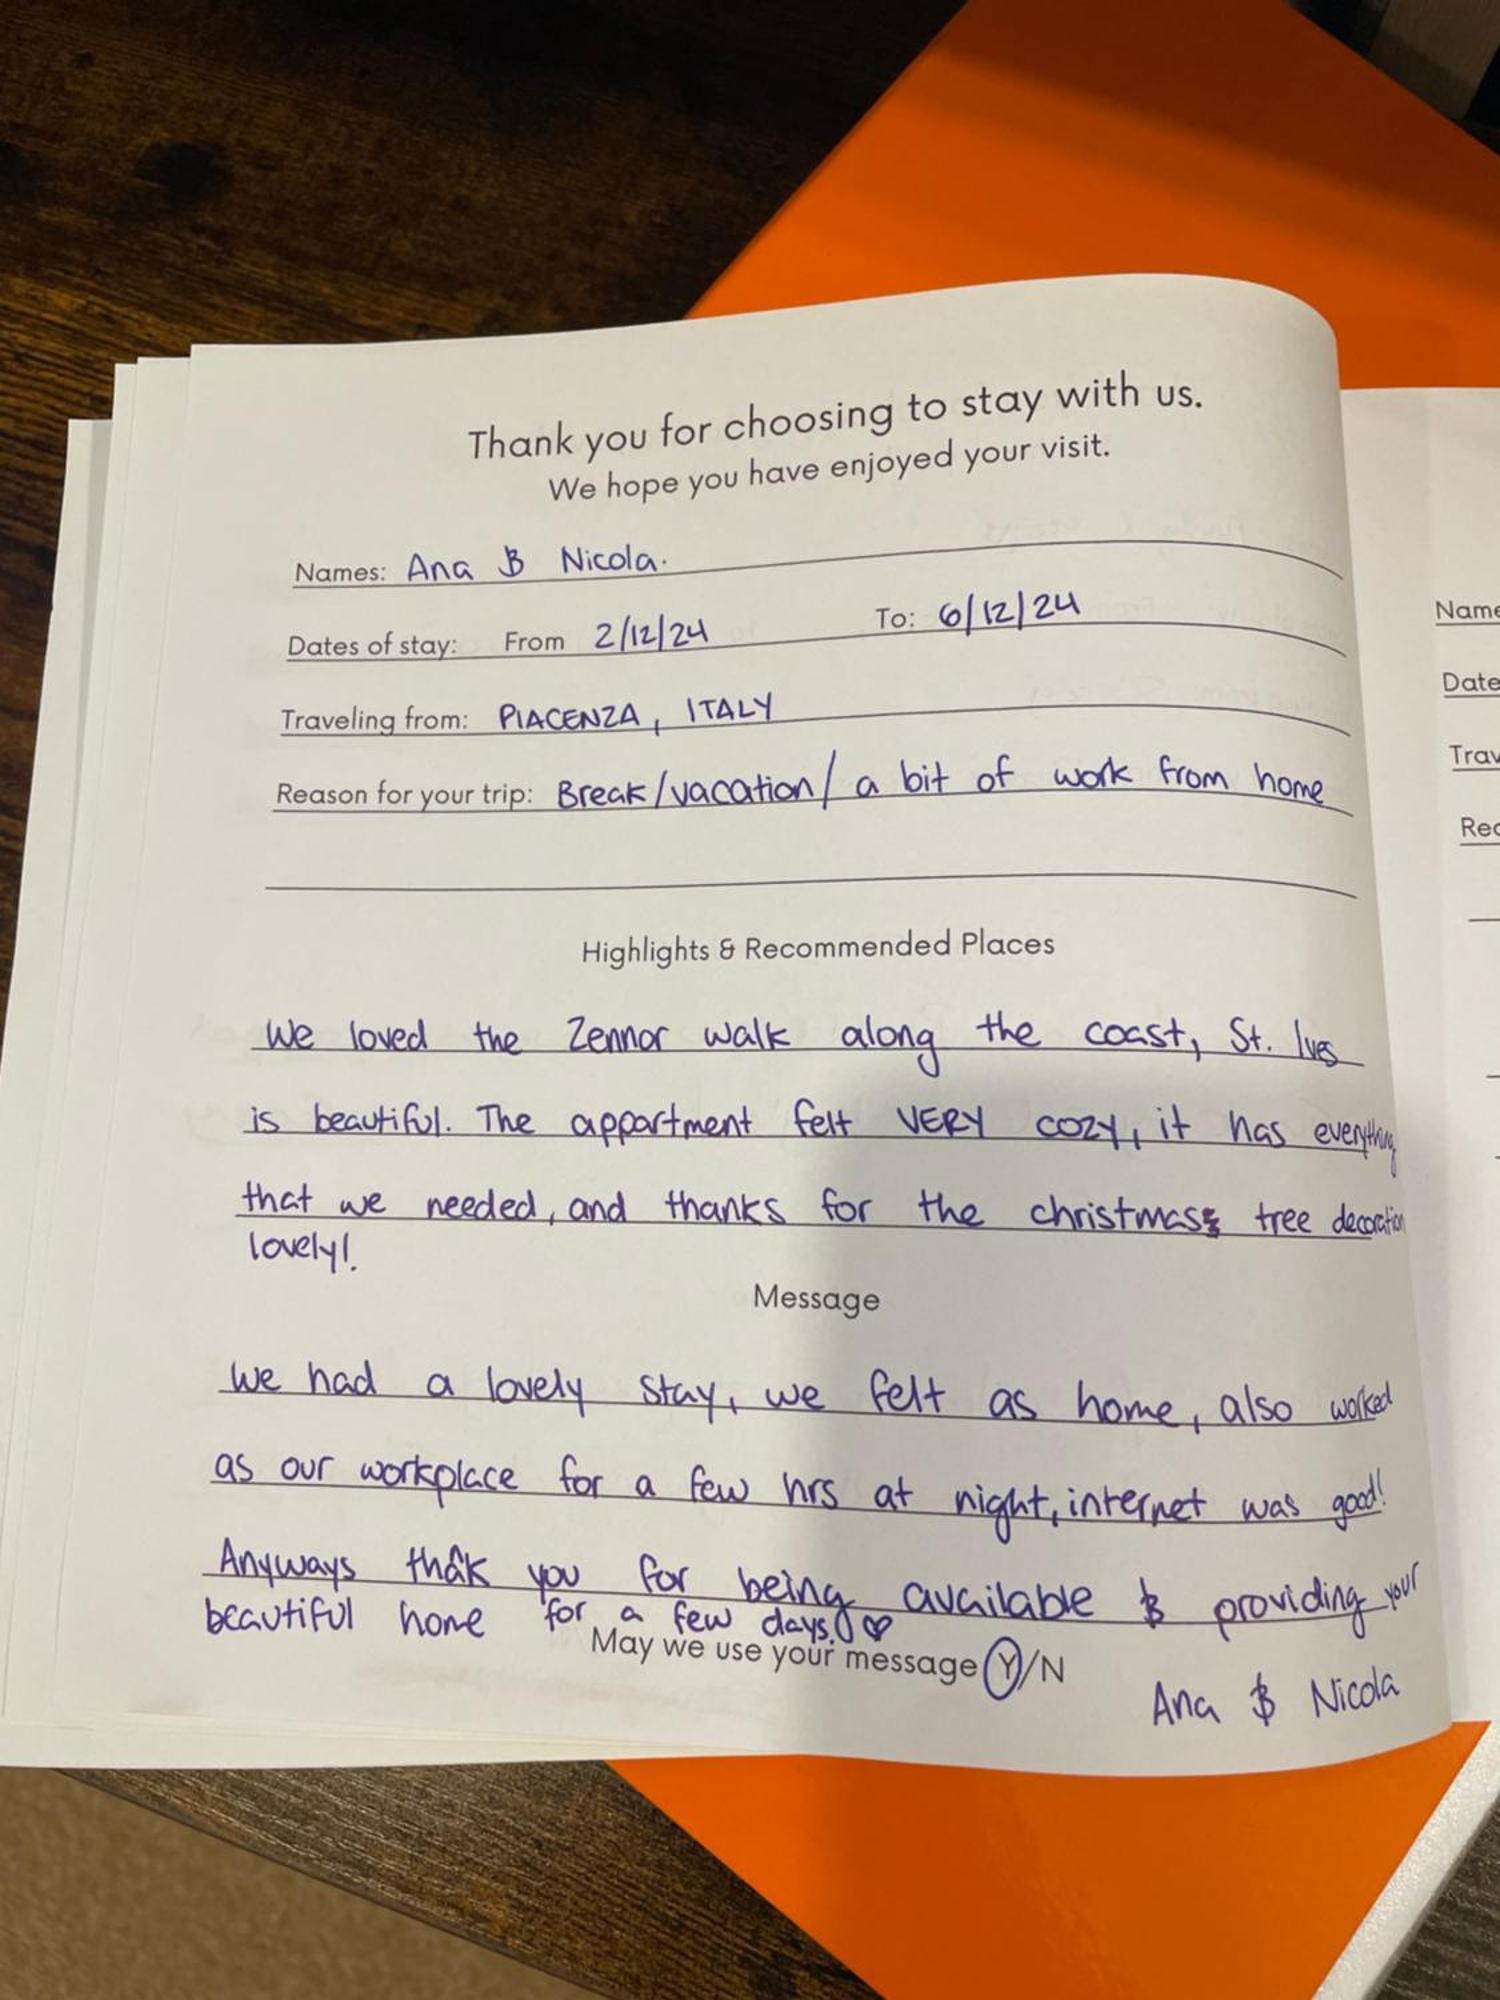 Thank you for choosing to stay with us.
We hope you have enjoyed your visit.
Names: Ana & Nicola.
Dates of stay: From 2/12/24 To: 6/12/24
Traveling from: PIACENZA, ITALY
Reason for your trip: Break/vacation/ a bit of work from home
Highlights & Recommended Places
We loved the Zennor walk along the coast, St. Ives
is beautiful. The appartment felt VERY COZY, it has everything
that we needed, and thanks for the christmas tree decoration
lovely!.
Message
We had a lovely stay, we felt as home, also worked
as our workplace for a few hrs at night, internet was good!
Anyways thank you for being available & providing your
beautiful home for a few days. ♡
May we use your message Y/N
Ana & Nicola
Name
Date
Trav
Rec